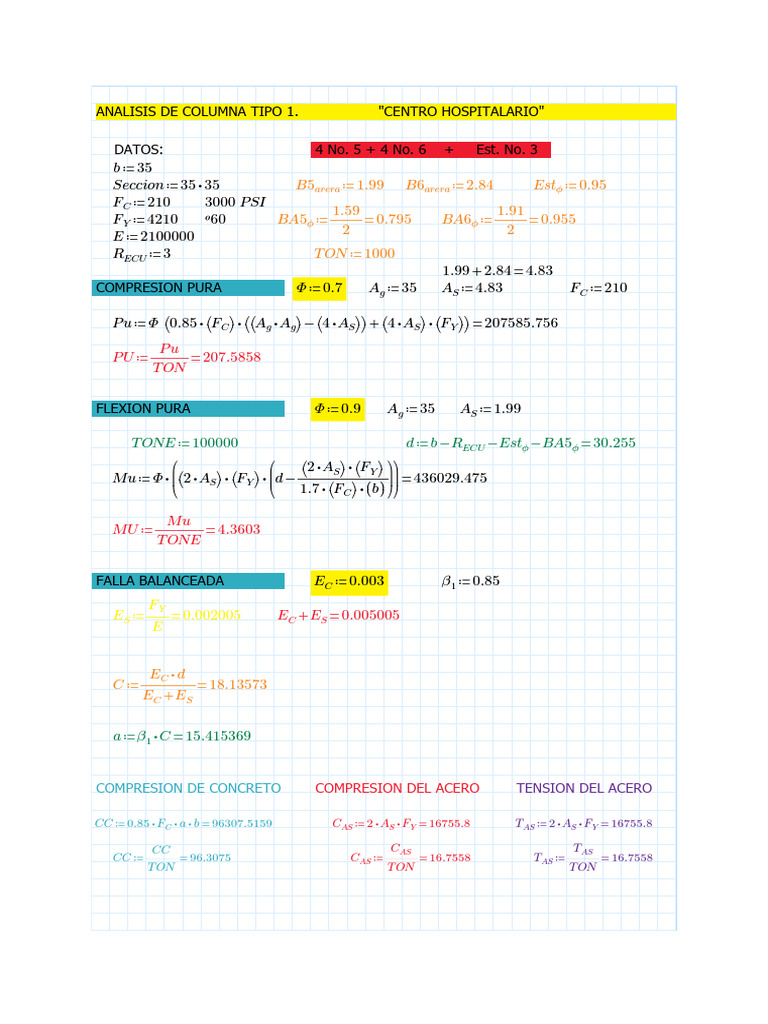 ANALISIS DE COLUMNA TIPO 1. "CENTRO HOSPITALARIO"
DATOS: 4 No. 5 + 4 No. 6 + Est. No. 3
b:=35
Seccion:=35•35 B5_{arera}:=1.99 B6_{arera}:=2.84 Est_ϕ:=0.95
F_C:=210 3000 PSI
F_Y:=4210 º60 BA5_ϕ:=\frac{1.59}{2}=0.795 BA6_ϕ:=\frac{1.91}{2}=0.955
E:=2100000
R_{ECU}:=3 TON:=1000
1.99+2.84=4.83
COMPRESION PURA Φ:=0.7 A_g:=35 A_S:=4.83 F_C:=210
Pu:=Φ (0.85•(F_C)•((A_g•A_g)−(4•A_S))+(4•A_S)•(F_Y))=207585.756
PU:=\frac{Pu}{TON}=207.5858
FLEXION PURA Φ:=0.9 A_g:=35 A_S:=1.99
TONE:=100000 d:=b−R_{ECU}−Est_ϕ−BA5_ϕ=30.255
Mu:=Φ•((2•A_S)•(F_Y)•(d−\frac{(2•A_S)•(F_Y)}{1.7•(F_C)•(b)}))=436029.475
MU:=\frac{Mu}{TONE}=4.3603
FALLA BALANCEADA E_C:=0.003 β_1:=0.85
E_S:=\frac{F_Y}{E}=0.002005 E_C+E_S=0.005005
C:=\frac{E_C•d}{E_C+E_S}=18.13573
a:=β_1•C=15.415369
COMPRESION DE CONCRETO COMPRESION DEL ACERO TENSION DEL ACERO
CC:=0.85•F_C•a•b=96307.5159 C_{AS}:=2•A_S•F_Y=16755.8 T_{AS}:=2•A_S•F_Y=16755.8
CC:=\frac{CC}{TON}=96.3075 C_{AS}:=\frac{C_{AS}}{TON}=16.7558 T_{AS}:=\frac{T_{AS}}{TON}=16.7558